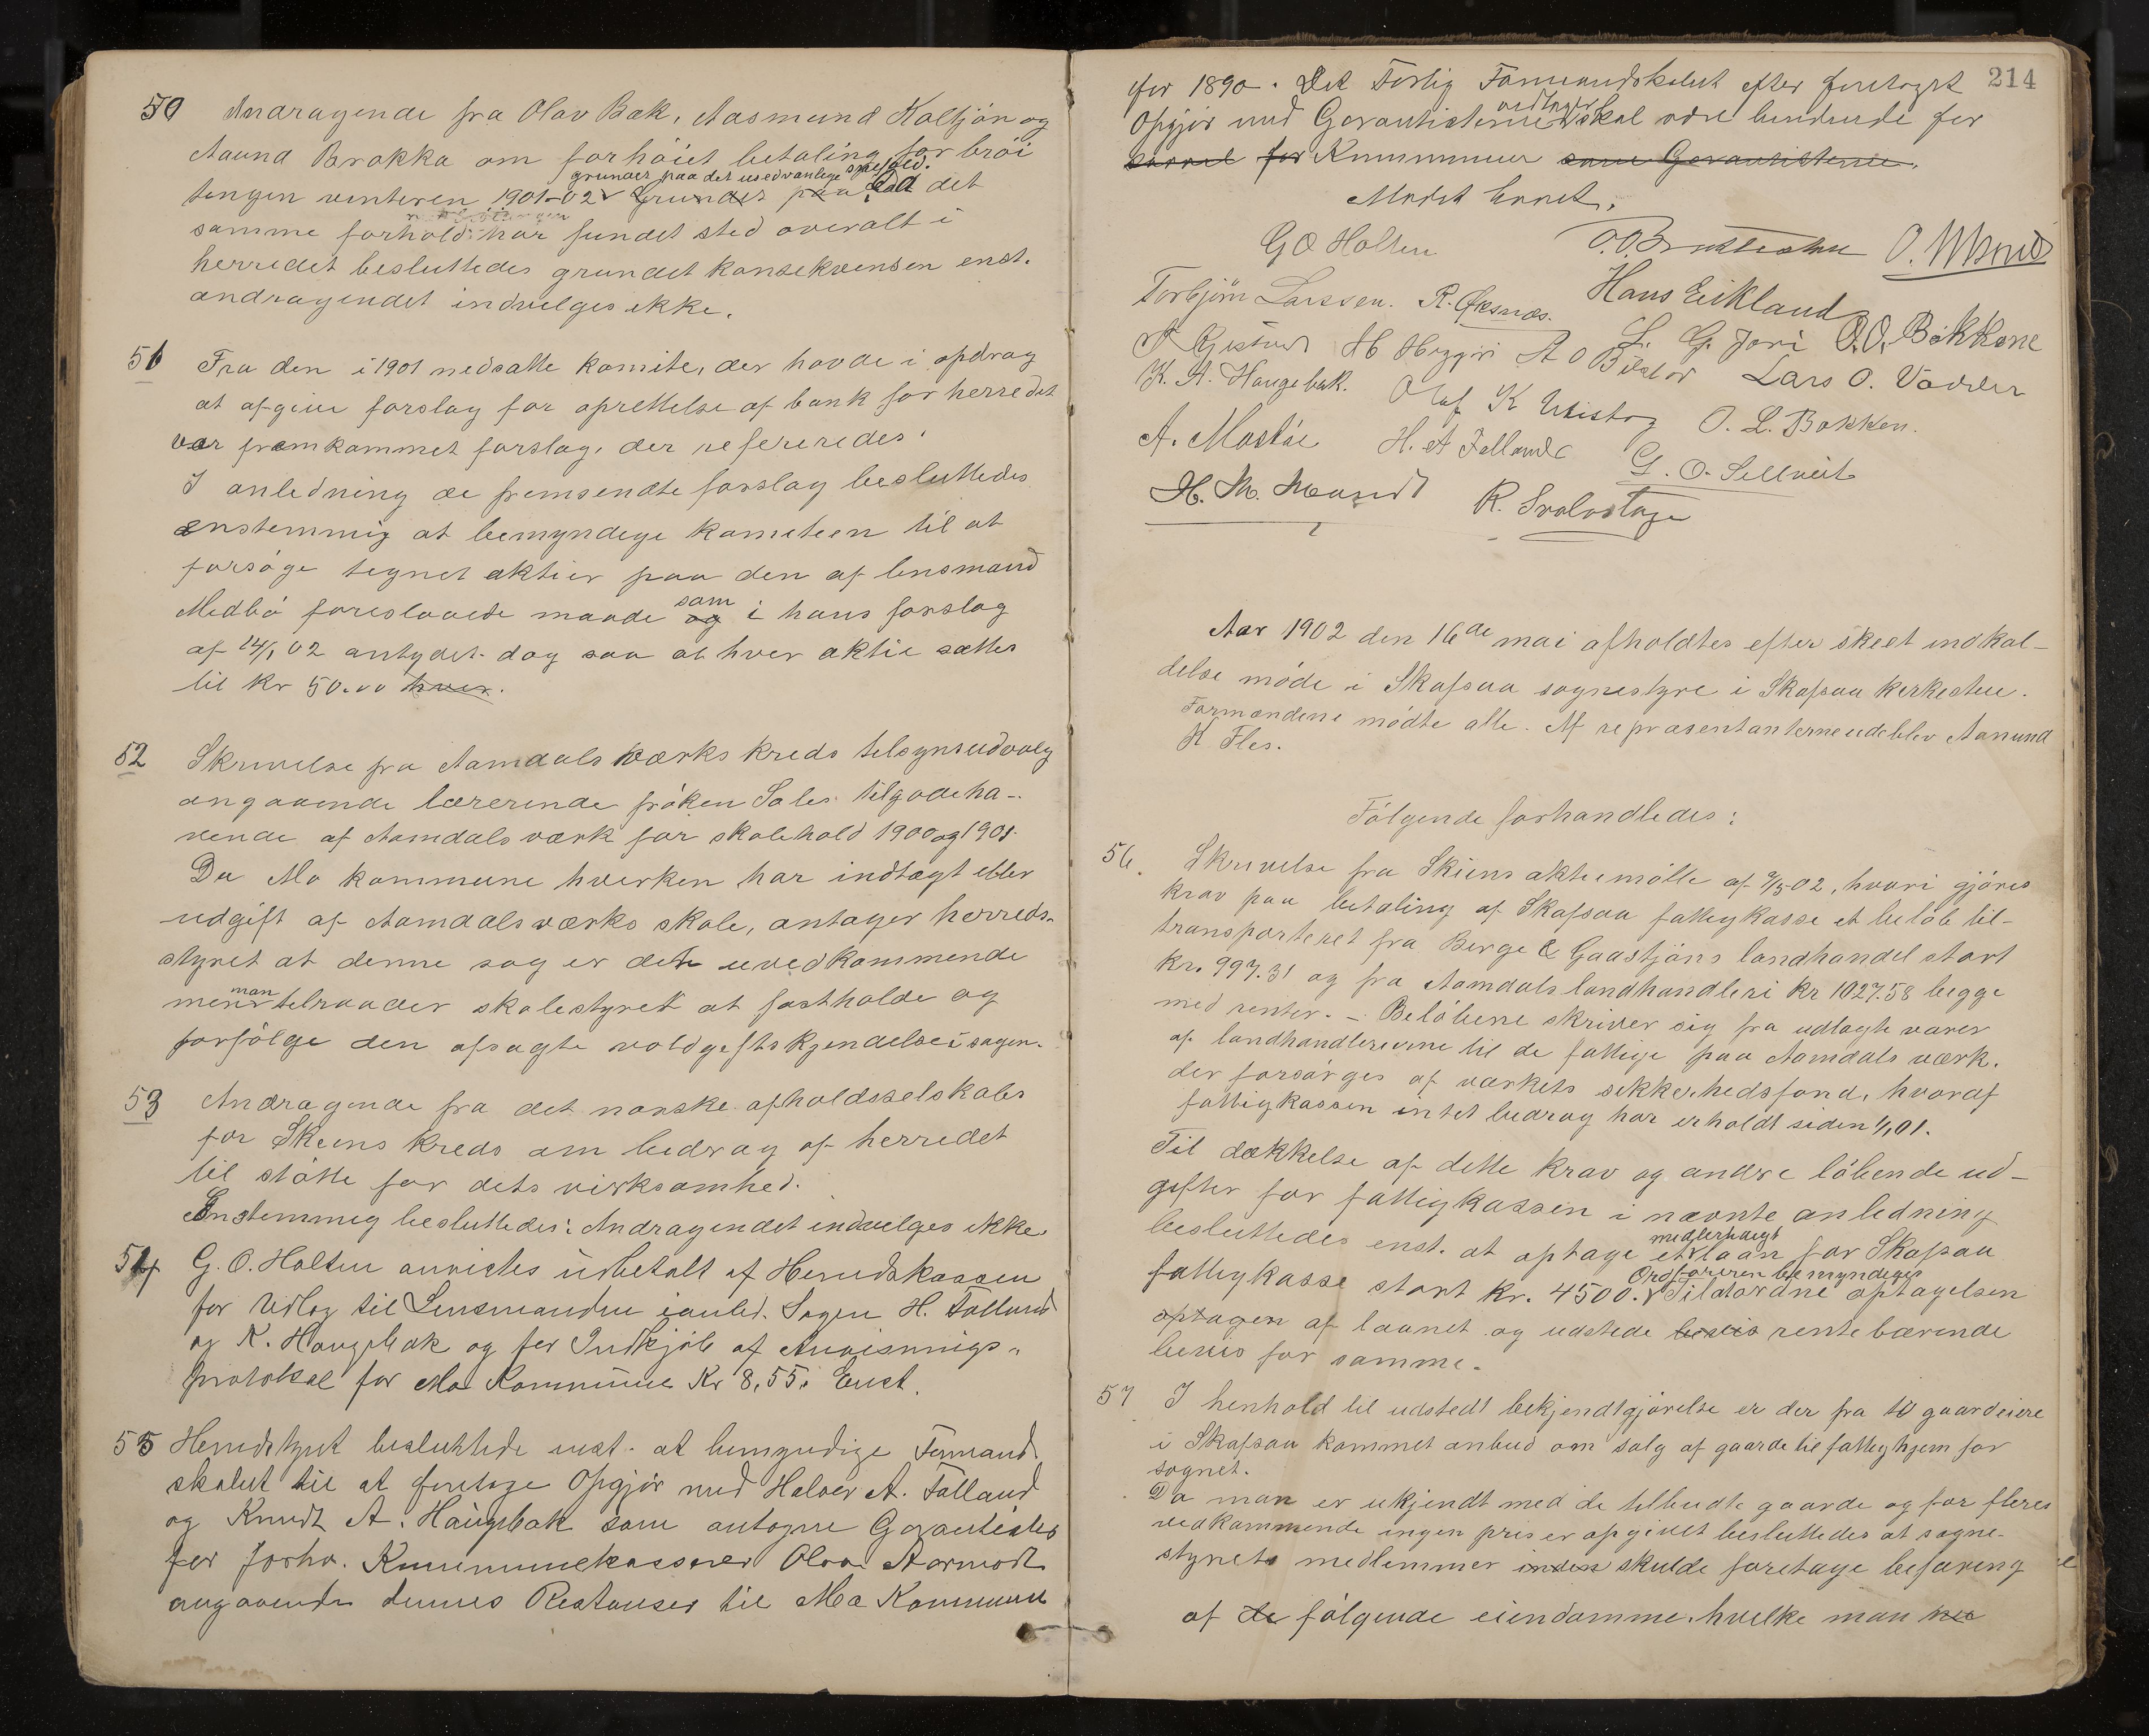 50 Andragende fra Olav Bak, Aasmund Kaltjön og
Aaund Brokka om forhöiet betaling for bröi
grundet paa det usedvanlige snefold.
tingen vinteren 1901-02 Grundet paa Da det
samme forhold har fundet sted overalt i
herredet besluttedes grundet konsekvensen enst.
andragendet indvilges ikke.
51 Fra den i 1901 nedsatte komite, der havde i opdrag
at afgive forslag for oprettelse af bank for herredet
var fremkommet forslag, der refereredes.
I anledning de fremsendte forslag besluttedes
enstemmig at bemyndige kometeen til at
forsöge tegnet aktier paa den af lensmand
som
Medbö foreslaaede maade og i hans forslag
af 14/1 02 antydet dog saa at hver aktie sættes
til kr 50.00 hver.
52 Skrivelse fra Aamdals Værks kreds tilsynsudvalg
angaaende lærerinde fröken Sales tilgodeha-
vende af Aamdals værk for skolehold 1900 og 1901.
Da Mo kommune hverken har indtægt eller
udgift af Aamdals værks skole, antager herreds-
styret at denne sag er det uvedkommende
man
men tilraader skolestyret at fastholde og
forfölge den afsagte voldgiftskjendelse i sagen.
53 Andragende fra det norske afholdsselskabs
for Skiens kreds om bidrag af herredet
til stötte for dets virksomhed.
Enstemmig besluttedes: Andragendet indvilges ikke.
54 G. O. Holten anvistes udbetalt af Herredskassen
for Udlæg til Lensmanden i anled. Sagen H. Falland
og K. Haugebak og for Indkjöb af Anvisnings-
protokol for Mo Kommune Kr 8,55. Enst.
55 Herredstyret besluttede enst. at bemyndige Formand
skabet til at foretage Opgjör med Halvor A. Falland
og Knudt A. Haugebak som antagne Garantister
for forhv. Kommunekasserer Olav Aarmodt
angaaende dennes Restanser til Mo Kommune
214
for 1890. Det Forlig Formandskabet efter foretaget
vedtager
Opgjör med Garantisterne skal være bindende for
for Kommunen som Garantisterne.
Mödet hævet.
G O Holten
Torbjörn Larssen. R. Öksnæs. Hans Eikland
L. G. Jori O. O. Bökkene
K. A. Haugebak. Lars O. Vadder
Olaf K O. L. Bakken.
A. Mostöe H. A Falland G. O. Selltveit
H. M.
Aar 1902 den 16de mai afholdtes efter skeet indkal-
delse möde i Skafsaa sognestyre i Skafsaa kirkestue.
Formændene mödte alle. Af repræsentanterne udeblev Aanund
K Fles.
Fölgende forhandledes:
56. Skrivelse fra Skiens aktiemölle af 9/5 02, hvori gjöres
krav paa betaling af Skafsaa fattigkasse et belöb til-
transporteret fra Berge & Gaastjöns landhandel stort
Kr. 997.31 og fra Aamdals landhandleri Kr 1027.58 begge
med renter. - Belöbene skriver sig fra udlagte varer
af landhandlererne til de fattige paa Aamdals værk.
der forsörges af værkets sikkerhedsfond, hvoraf
fattigkassen intet bidrag har erholdt siden 1/1 01.
Til dækkelse af dette krav og andre löbende ud-
gifter for fattigkassen i nævnte anledning
besluttedes enst. at optage et laan for Skafsaa
midlertidigt
fattigkasse stort kr. 4500. Tilatordne optagelsen
Ordföreren bemyndiges
optagen af laanet og udstede bevis rentebærende
bevis for samme.
57 I henhold til udstedt bekjendtgjörelse er der fra 10 gaardeiere
i Skafsaa kommet anbud om salg af gaarde til fattighjem for
sognet.
Da man er ukjendt med de tilbudte gaarde og for fleres
vedkommende ingen priser opgivet besluttedes at sogne-
styrets medlemmer inden skulde foretage befaring
af de fölgende eiendomme, hvilke man